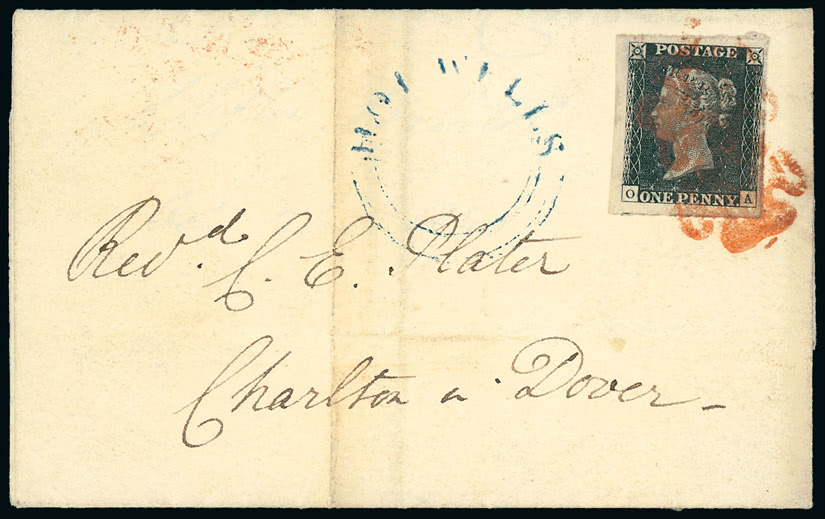 HOT WELLS
POSTAGE
O ONE PENNY A
Rev^d. C. E. Plater
Charlton n. Dover